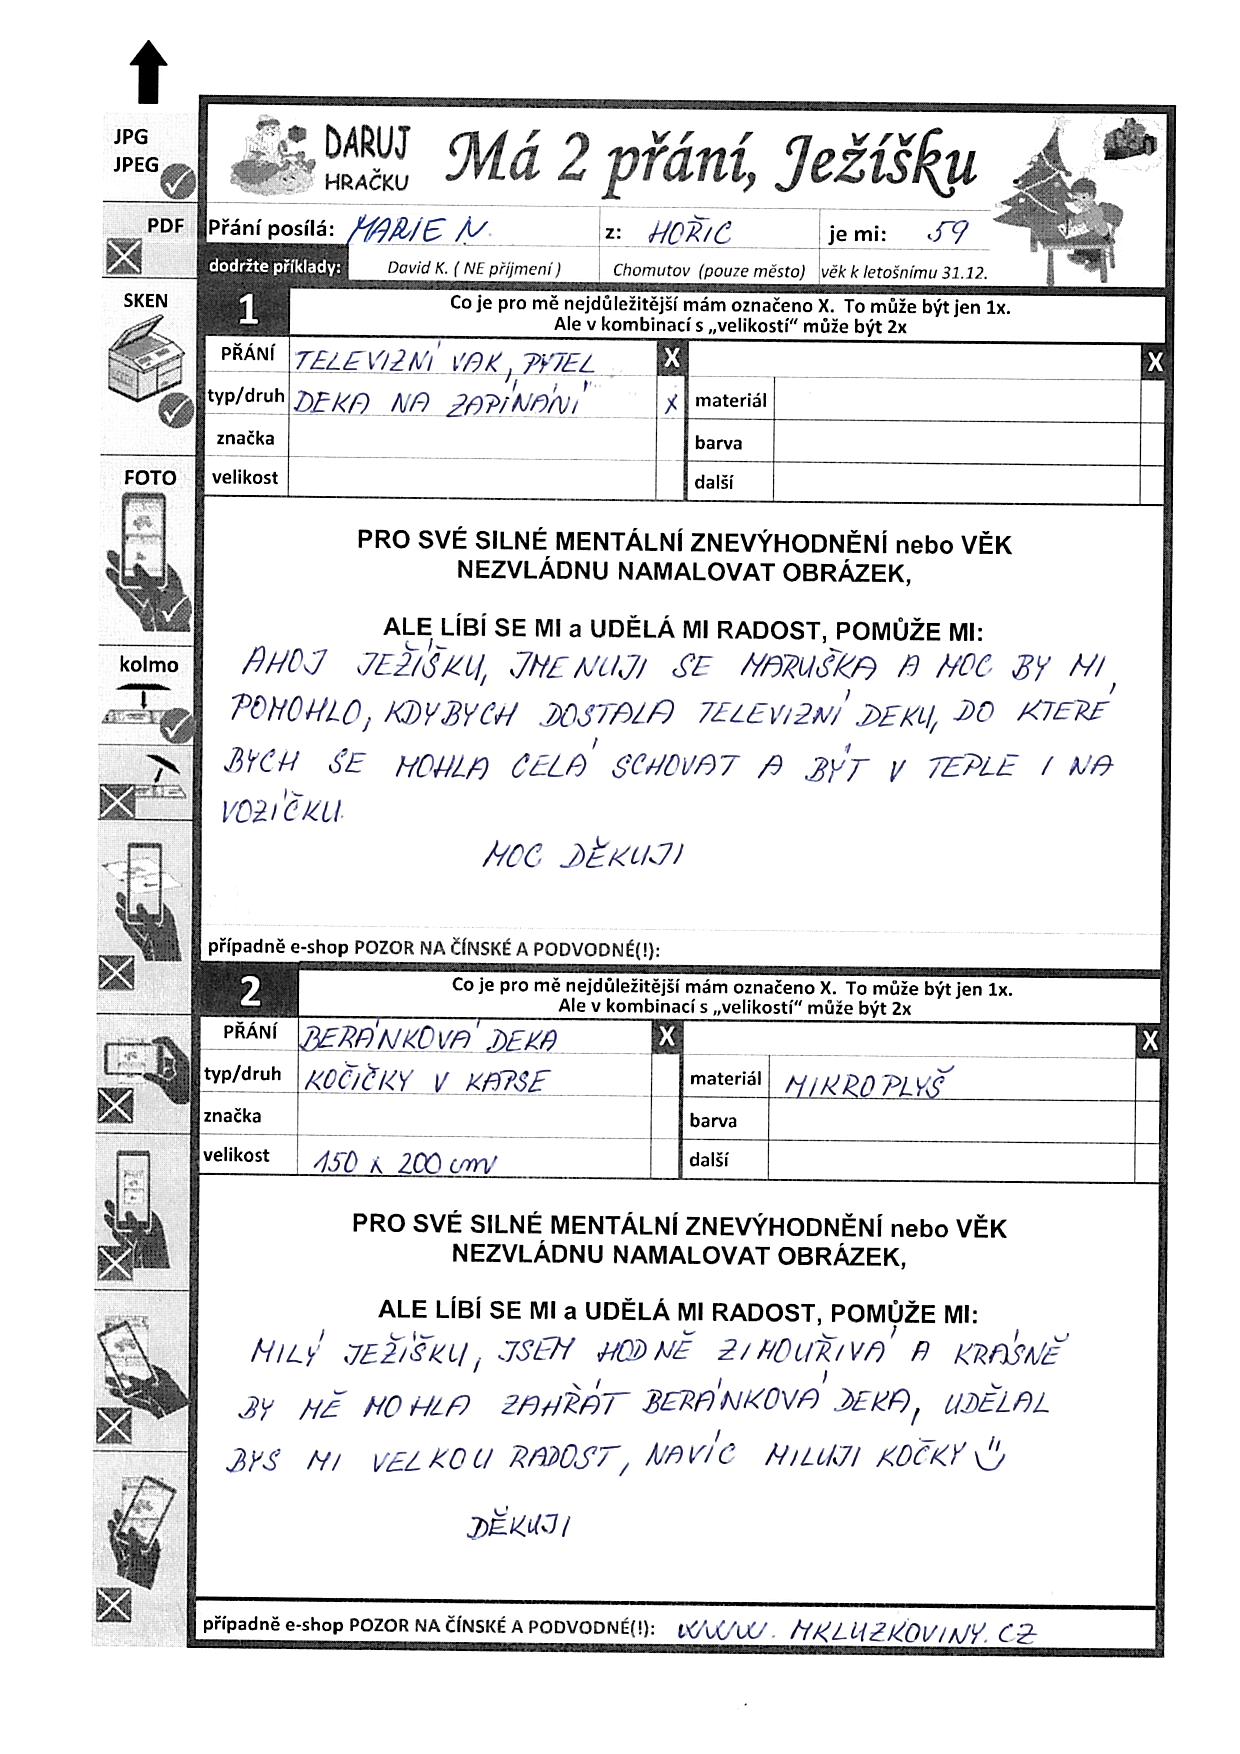 JPG
JPEG
PDF
SKEN
FOTO
kolmo
DARUJ
HRAČKU
Má 2 přání, Ježíšku
Přání posílá: MARIE N. z: HOŘIC je mi: 59
dodržte příklady: David K. ( NE příjmení ) Chomutov (pouze město) věk k letošnímu 31.12.
1
Co je pro mě nejdůležitější mám označeno X. To může být jen 1x.
Ale v kombinací s „velikostí“ může být 2x
PŘÁNÍ TELEVIZNÍ VAK, PYTEL X X
typ/druh DEKA NA ZAPÍNÁNÍ X materiál
značka barva
velikost další
PRO SVÉ SILNÉ MENTÁLNÍ ZNEVÝHODNĚNÍ nebo VĚK
NEZVLÁDNU NAMALOVAT OBRÁZEK,
ALE LÍBÍ SE MI a UDĚLÁ MI RADOST, POMŮŽE MI:
AHOJ JEŽÍŠKU, JMENUJI SE MARUŠKA A MOC BY MI
POMOHLO, KDYBYCH DOSTALA TELEVIZNÍ DEKU, DO KTERÉ
BYCH SE MOHLA CELÁ SCHOVAT A BÝT V TEPLE I NA
VOZÍČKU.
MOC DĚKUJI
případně e-shop POZOR NA ČÍNSKÉ A PODVODNÉ(!):
2
Co je pro mě nejdůležitější mám označeno X. To může být jen 1x.
Ale v kombinací s „velikostí“ může být 2x
PŘÁNÍ BERÁNKOVÁ DEKA X X
typ/druh KOČIČKY V KAPSE materiál MIKROPLYŠ
značka barva
velikost 150 x 200 cm další
PRO SVÉ SILNÉ MENTÁLNÍ ZNEVÝHODNĚNÍ nebo VĚK
NEZVLÁDNU NAMALOVAT OBRÁZEK,
ALE LÍBÍ SE MI a UDĚLÁ MI RADOST, POMŮŽE MI:
MILÝ JEŽÍŠKU, JSEM HODNĚ ZIMOUŘIVÁ A KRÁSNĚ
BY MĚ MOHLA ZAHŘÁT BERÁNKOVÁ DEKA, UDĚLAL
BYS MI VELKOU RADOST, NAVÍC MILUJI KOČKY
DĚKUJI
případně e-shop POZOR NA ČÍNSKÉ A PODVODNÉ(!): WWW.MKLUZKOVINY.CZ